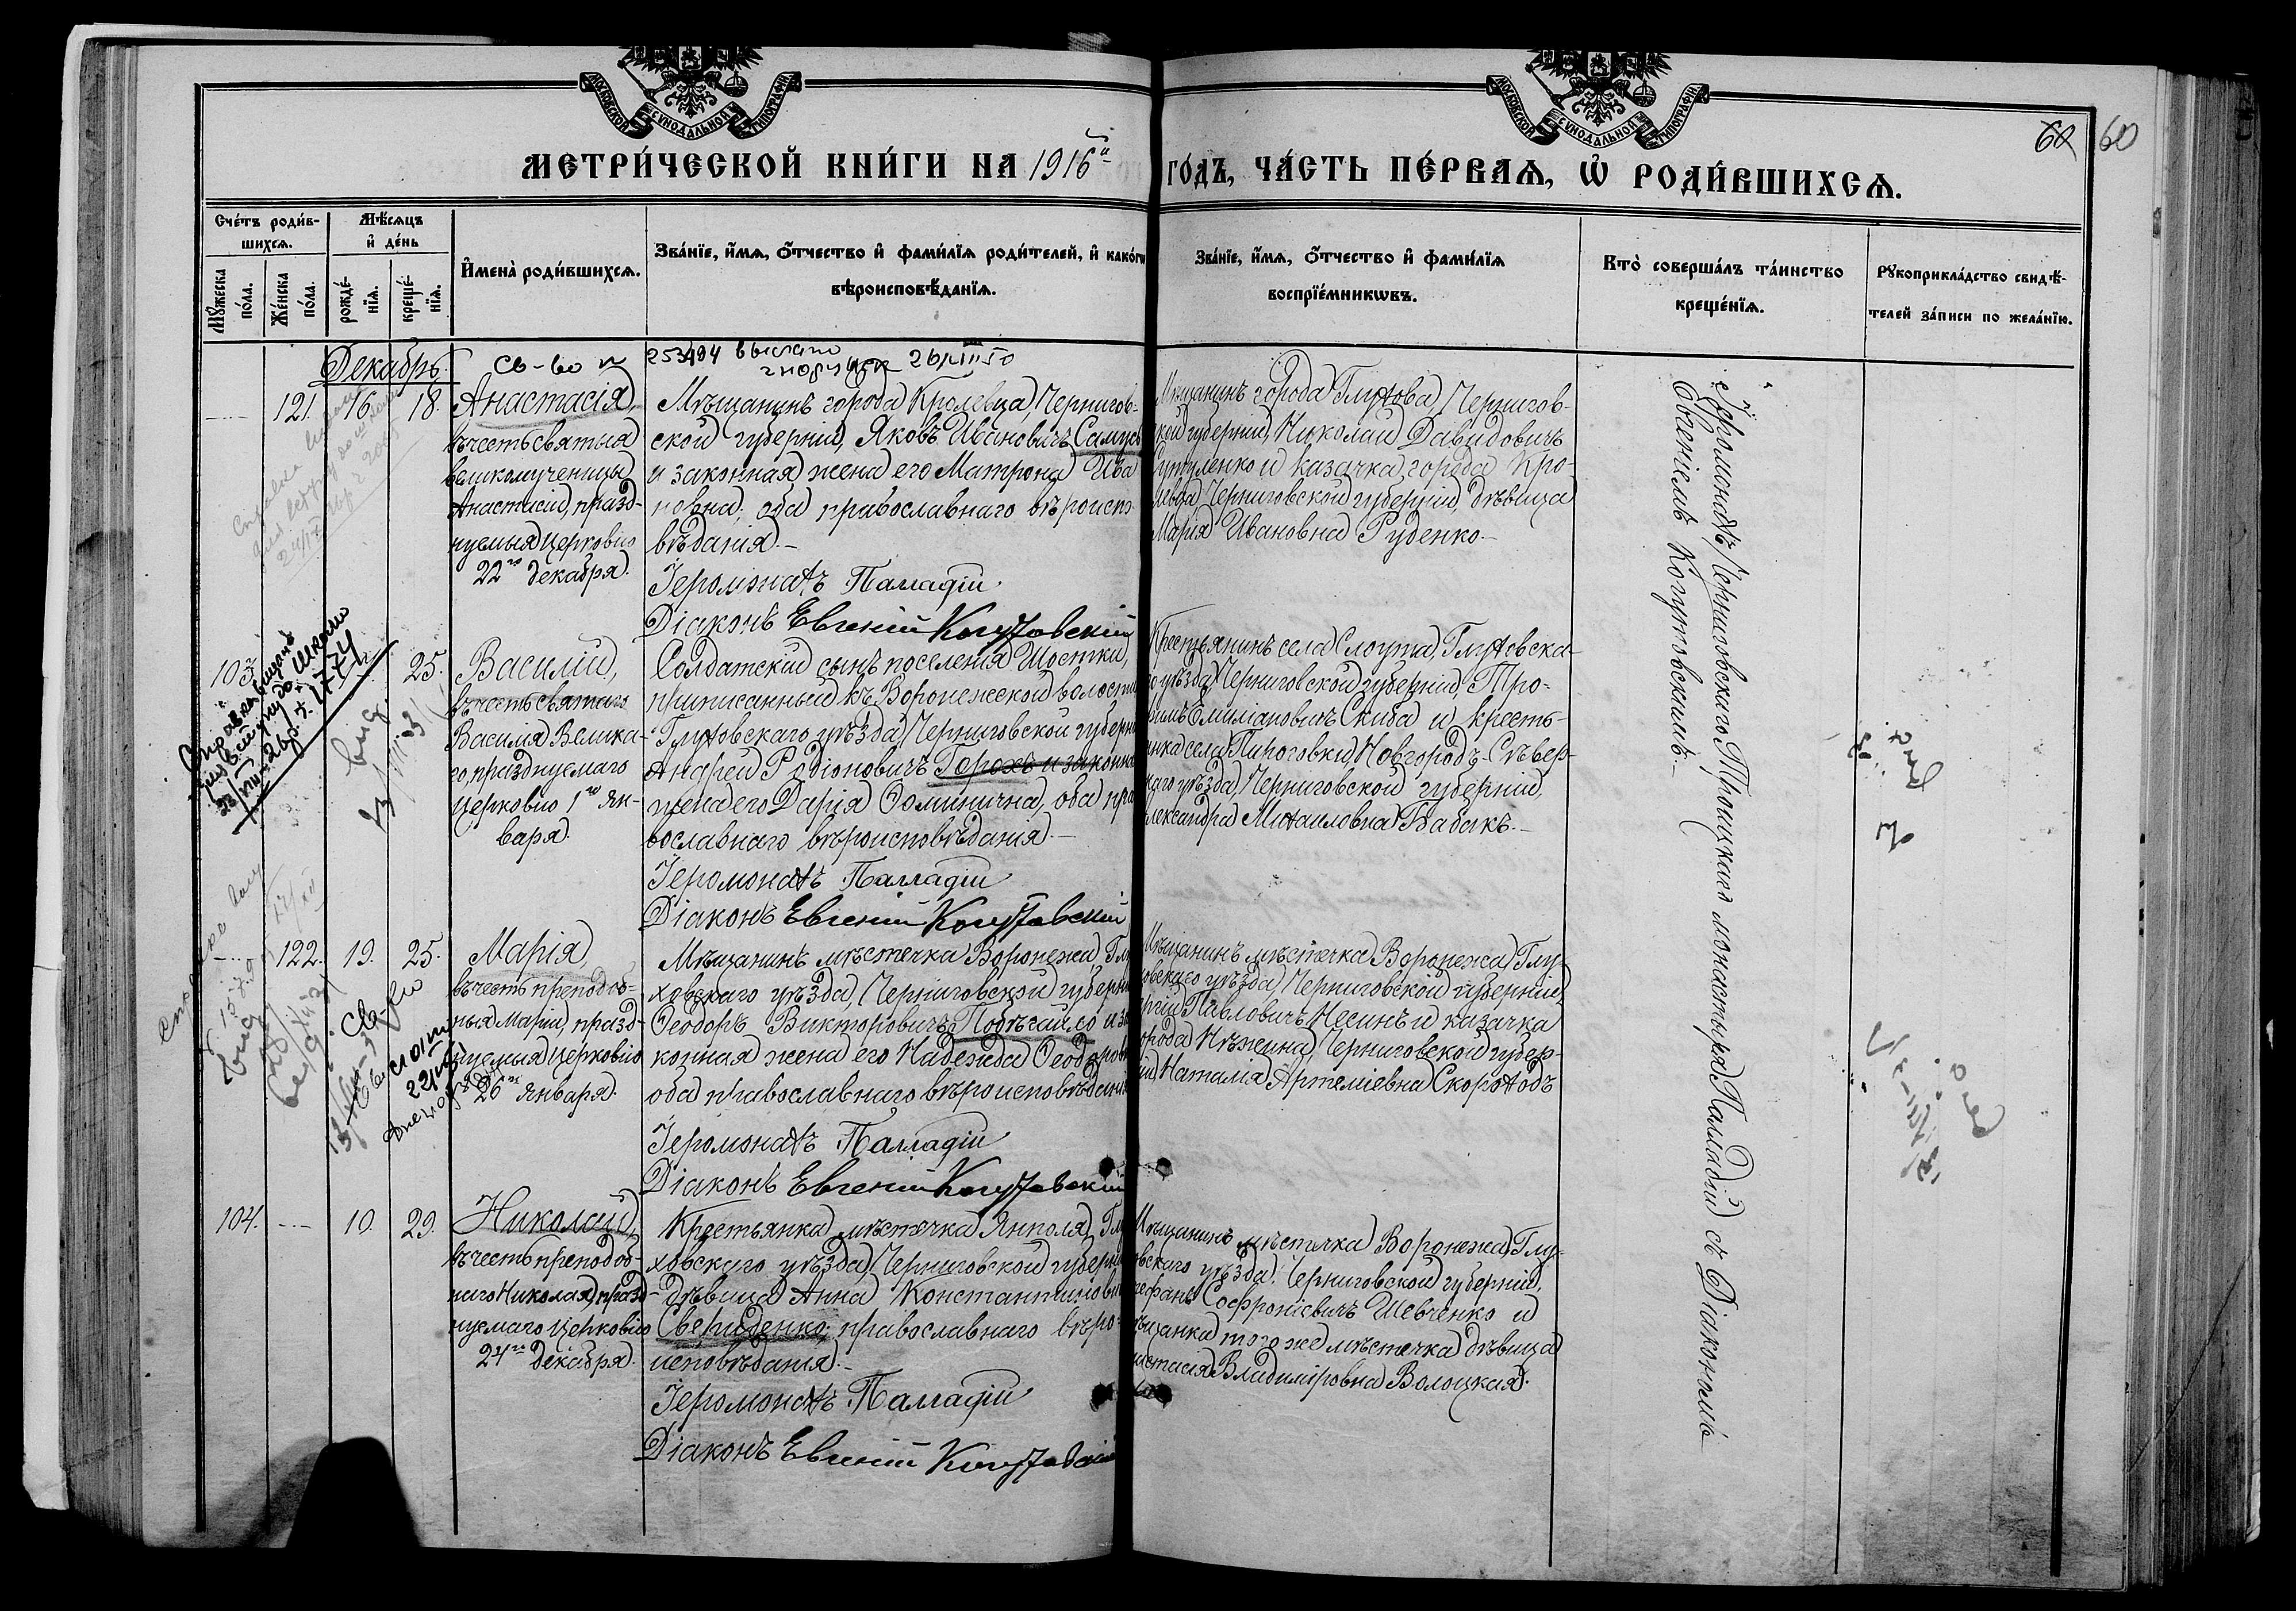 МОСКОВСКОЙ СѴНОДАЛЬНОЙ ТИПОГРАФІИ
МОСКОВСКОЙ СѴНОДАЛЬНОЙ ТИПОГРАФІИ
60 60
МЕТРИ́ЧЕСКОЙ КНИ́ГИ НА 1916й ГО́ДЪ, ЧА́СТЬ ПЕ́РВАѦ, Ѡ҆ РОДИ́ВШИХСѦ.
Сче́тъ роди́в-
шихсѧ.
Мꙋ́жеска по́ла.
Же́нска по́ла.
Мѣ́сѧцъ
и҆ де́нь
рожде́-
нїѧ.
креще́-
нїѧ.
И҆мена̀ роди́вшихсѧ.
Зва́нїе, и҆́мѧ, ѻ҆́тчество и҆ фами́лїѧ роди́телей, и҆ како́гѡ
вѣроисповѣ́данїѧ.
Зва́нїе, и҆́мѧ, ѻ҆́тчество и҆ фами́лїѧ
воспрїе́мникѡвъ.
Кто̀ соверша́лъ та́инство
креще́нїѧ.
Рꙋкоприкла́дство свидѣ́-
телей за́писи по жела́нїю.
Декабрь.
св-во
121. 16. 18.
Анастасія,
въ честь святыя
великомученицы
Анастасіи, празд-
нуемыя Церковію
22го декабря.
Мѣщанинъ города Кролевца, Чернигов-
ской губерніи, Яковъ Ивановичъ Самусь
и законная жена его Матрона Ива
новна; оба православнаго вѣроиспо-
вѣданія.-
Іеромонахъ Палладій
Діаконъ Евгеній Когутовскій
Мѣщанинъ города Глухова, Чернигов-
ской губерніи, Николай Давидовичъ
и казачка города Кро-
левца, Черниговской губерніи, дѣвица
Марія Ивановна Руденко.-
Іеромонахъ Черниговскаго Троицкаго монастыря Палладій съ Діакономъ
Евгеніемъ Когутовскимъ.-
103. 25.
Василій,
въ честь святаго
Василія Велика-
го, празднуемаго
Церковію 1го Ян-
варя.
Солдатскій сынъ поселенія Шостки,
приписанный къ Воронежской волости
Глуховскаго уѣзда, Черниговской губерніи
Андрей Родіоновичъ Горохъ и законная
жена его Дарія Фоминична, оба пра
вославнаго вѣроисповѣданія.-
Іеромонахъ Палладій
Діаконъ Евгеній Когутовскій
Крестьянинъ села Слоута, Глуховска-
го уѣзда, Черниговской губерніи, Тро-
фимъ Емиліановичъ Скиба и кресть-
янка села Пироговки, Новгородъ-Сѣвер-
скаго уѣзда, Черниговской губерніи,
Александра Михаиловна Бабакъ.-
122. 19. 25.
Марія,
въ честь преподоб-
ныя Маріи, празд-
нуемыя Церковію
26го Января.
Мѣщанинъ мѣстечка Воронежа, Глу
ховскаго уѣзда, Черниговской губерніи
Ѳеодоръ Викторовичъ Побѣгайло и за
конная жена его Надежда Ѳеодоров
оба православнаго вѣроисповѣданія
Іеромонахъ Палладій
Діаконъ Евгеній Когутовскій
Мѣщанинъ мѣстечка Воронежа, Глу-
ховскаго уѣзда, Черниговской губерніи,
Сергій Павловичъ Несинъ и казачка
города Нѣжина, Черниговской губер-
ніи, Наталія Артеміевна Скороходъ
104. 10. 29.
Николай,
въ честь преподоб-
наго Николая, празд-
нуемаго Церковію
24го декабря.
Крестьянка мѣстечка Янполя, Глу
ховскаго уѣзда, Черниговской губерніи
дѣвица Анна Константиновна
Свериденко, православнаго вѣро-
исповѣданія.-
Іеромонахъ Палладій
Діаконъ Евгеній Когутовскій
Мѣщанинъ мѣстечка Воронежа, Глу-
ховскаго уѣзда, Черниговской губерніи,
Стефанъ Софроніевичъ Шевченко и
мѣщанка того же мѣстечка дѣвица
Анастасія Владиміровна Волоцкая.